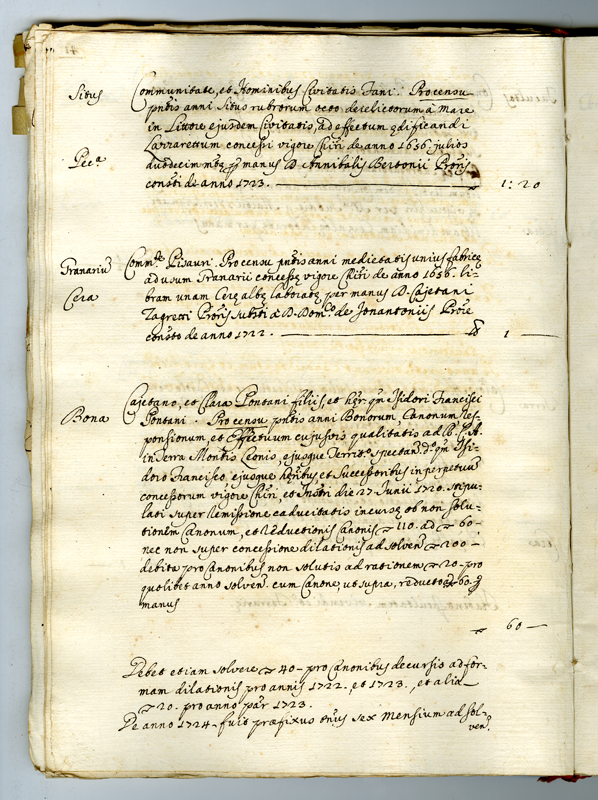 Situs
Communitate, et Hominibus Civitatis Fani. Pro censu
pntis anni Situs rubrorum octo derelictorum à Mare
in Littore ejusdem Civitatis, ad effectum ędificandi
Lazzarettum concessi vigore Chiri de anno 1656. julios
Pec.ᵃ
duodecim mtę per manus D. Annibalis Bertonii Proris
constiti de anno 1723. 1: 20
Granariũ
Comm.te Pisauri. Pro censu pntis anni medietatis unius fabricę
ad usum Granarii concessę vigore Chiri de anno 1656. li-
Cera
bram unam Cerę albę laboratę per manus D. Cajetani
Zagretti Proris substi à D. Dom.co de Jonantoniis Prore
constto de anno 1722. lb 1
Cajetano, et Clara Pontani filiis, et hęr. qm Isidori Francisci
Bona
Pontani. Pro censu pntis anni Bonorum, Canonum Res-
ponsionum, et Effectuum cujusvis qualitatis ad R. C. A.
in Terra Montis Leonis, ejusque Territ.o spectan. d.o qm Isi-
doro Francisco, ejusque hęribus et Successoribus in perpetuũ
concessorum vigore Chiri, et Instri die 27. Junii 1720. stipu-
lati super Remissione caducitatis incursę ob non solu-
tionem Canonum, et Reductionis Canonis 110. ad 60-
nec non super concessione dilationis ad solven. 200-
debita pro Canonibus non solutis ad rationem 20- pro
quolibet anno solven. cum Canone, ut supra, reducto 60- per
manus
60
Debet etiam solvere 40- pro Canonibus decursis ad for-
mam dilationis pro annis 1722. et 1723., et alia
20. pro anno pãr 1723.
De anno 1724. fuit præfixus onius sex mensium ad sol-
ven.